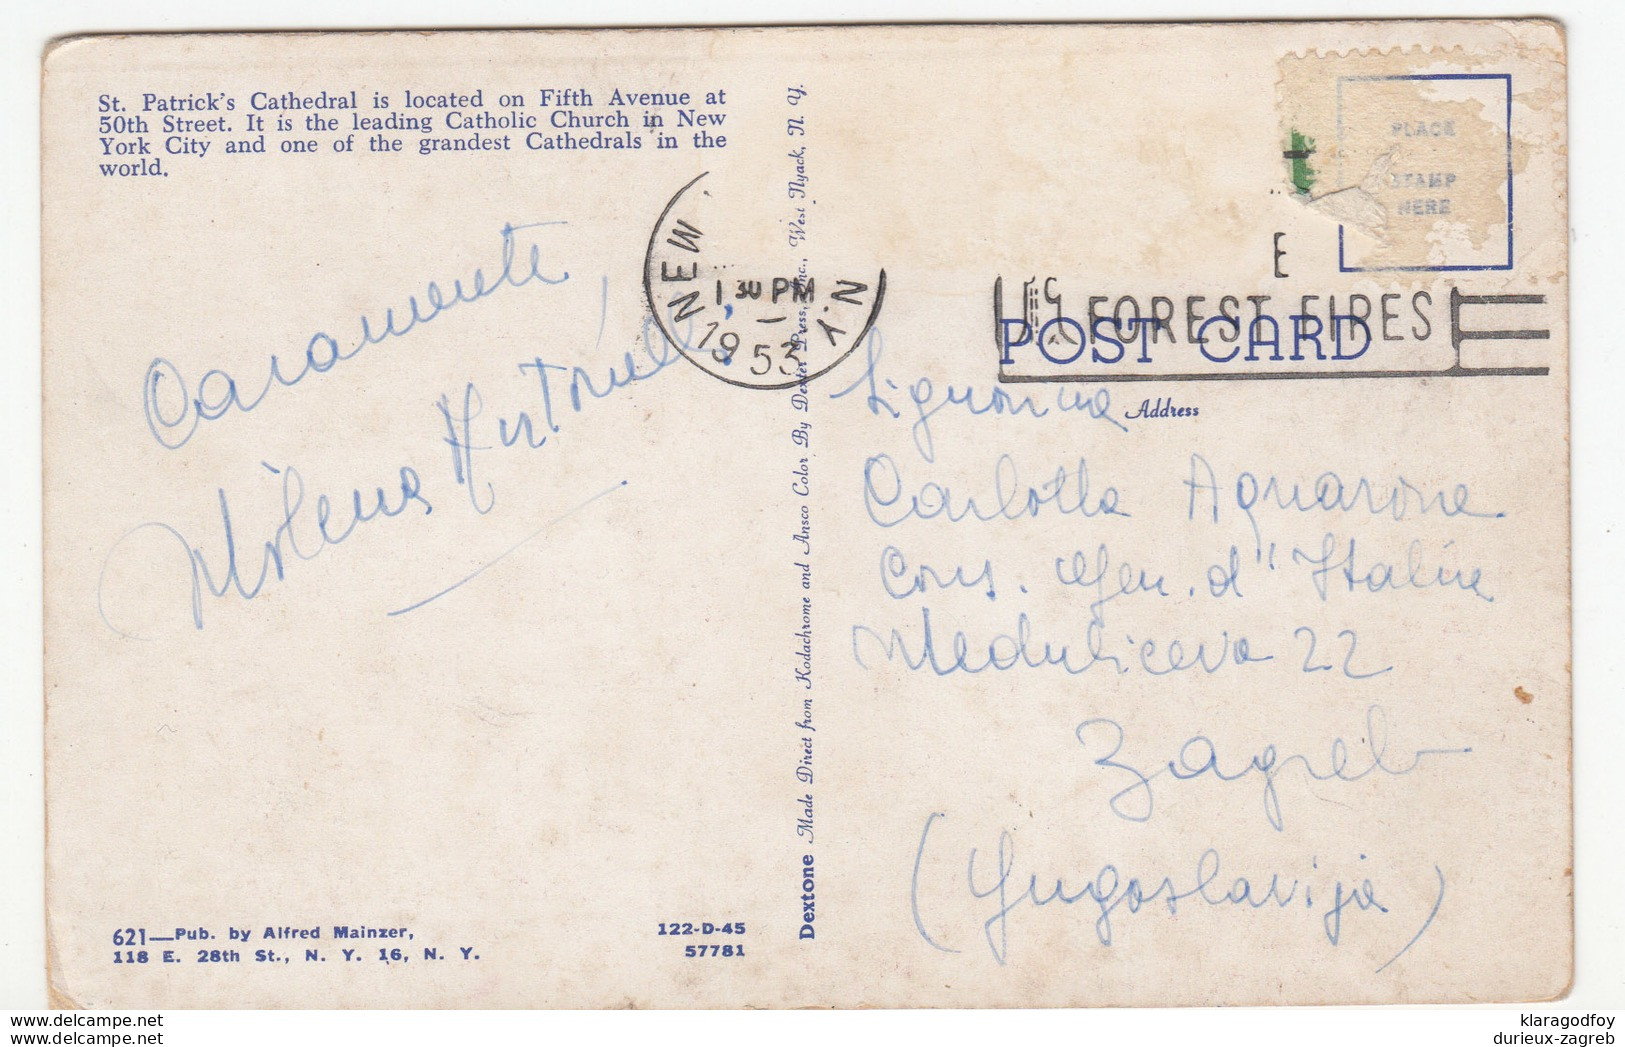 St. Patrick's Cathedral is located on Fifth Avenue at
50th Street. It is the leading Catholic Church in New
York City and one of the grandest Cathedrals in the
world.
Caramente
Milena
621—Pub. by Alfred Mainzer,
118 E. 28th St., N. Y. 16, N. Y.
122-D-45
57781
Dextone Made Direct from Kodachrome and Ansco Color By Dexter Press, Inc., West Nyack, N. Y.
NEW N.Y.
1 30 PM
1953
PLACE
STAMP
HERE
E
FOREST FIRES
POST CARD
Address
Signorina
Carlotta Aquarone
Cons. Gen. d'Italia
Meduliceva 22
Zagreb
(Yugoslavija)
www.delcampe.net
www.delcampe.net
klaragodfoy
durieux-zagreb